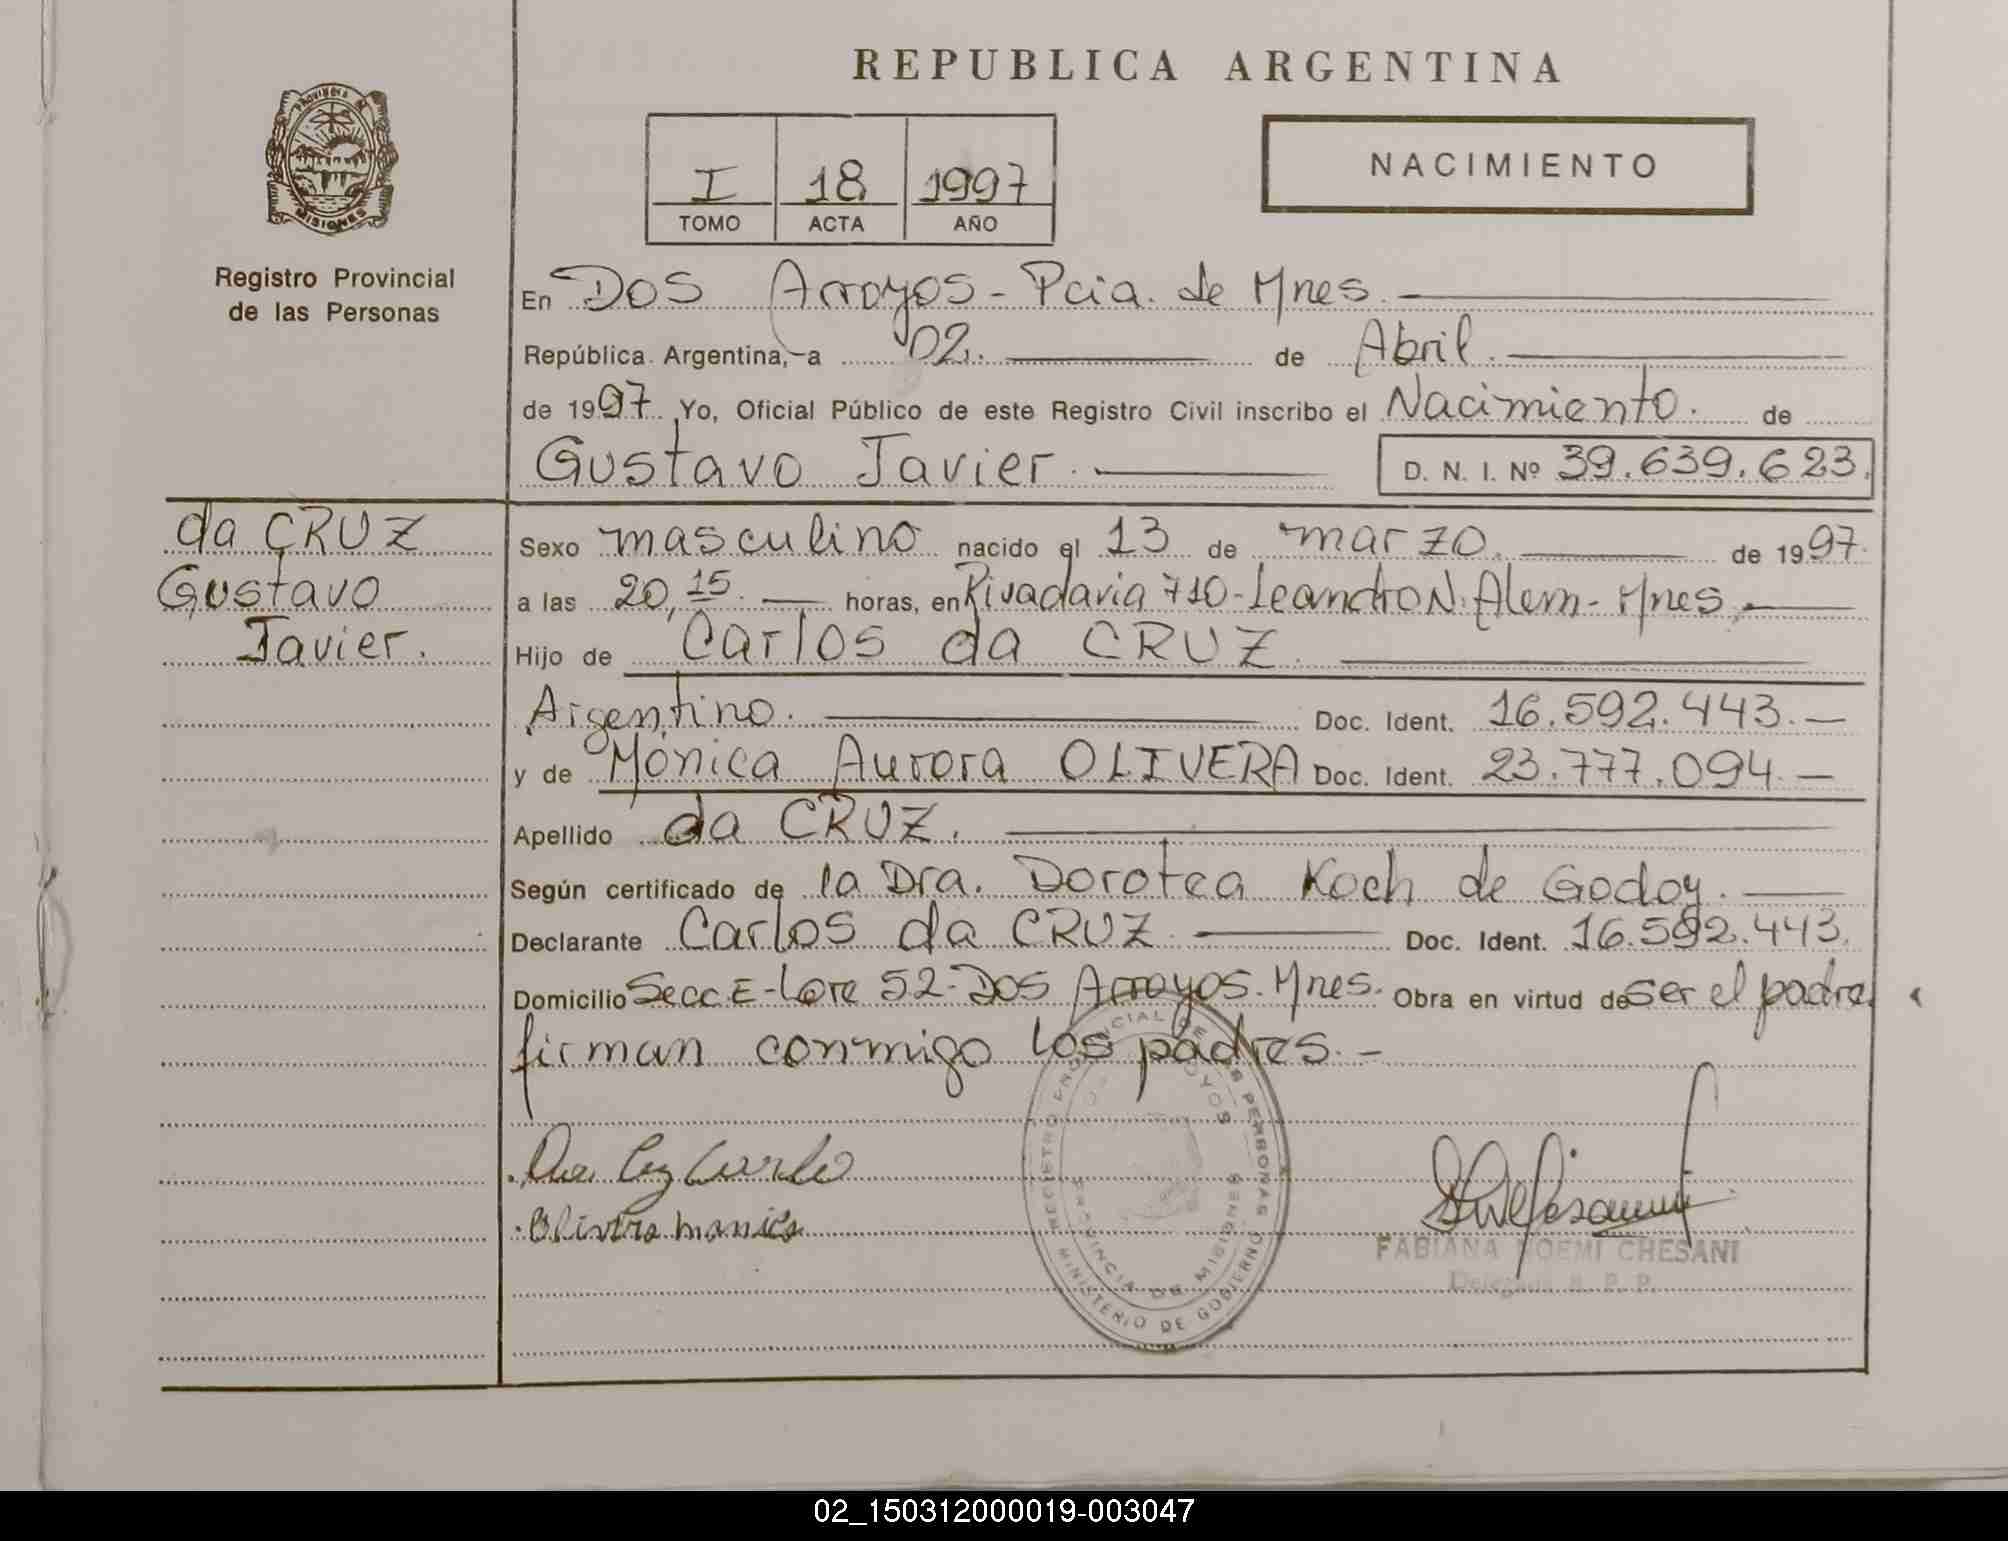 REPUBLICA ARGENTINA
PROVINCIA DE
MISIONES
Registro Provincial
de las Personas
I 18 1997
TOMO ACTA AÑO
NACIMIENTO
En Dos Arroyos - Pcia. de Mnes.
República Argentina, a 02. de Abril.
de 1997. Yo, Oficial Público de este Registro Civil inscribo el Nacimiento. de
Gustavo Javier. D. N. I. Nº 39.639.623.
da CRUZ
Gustavo
Javier.
Sexo masculino nacido el 13 de marzo. de 1997.
a las 20,15. horas, en Rivadavia 710 - Leandro N. Alem - Mnes.
Hijo de Carlos da CRUZ.
Argentino. Doc. Ident. 16.592.443.-
y de Mónica Aurora OLIVERA Doc. Ident. 23.777.094.-
Apellido da CRUZ.
Según certificado de la Dra. Dorotea Koch de Godoy.
Declarante Carlos da CRUZ Doc. Ident. 16.592.443.
Domicilio Secc. E - Lote 52 - Dos Arroyos. Mnes. Obra en virtud de ser el padre
firman conmigo los padres.-
REGISTRO PROVINCIAL DE LAS PERSONAS
MINISTERIO DE GOBIERNO
PROVINCIA DE MISIONES
Olivera monica
FABIANA NOEMI CHESANI
Delegada R. P. P.
02_150312000019-003047